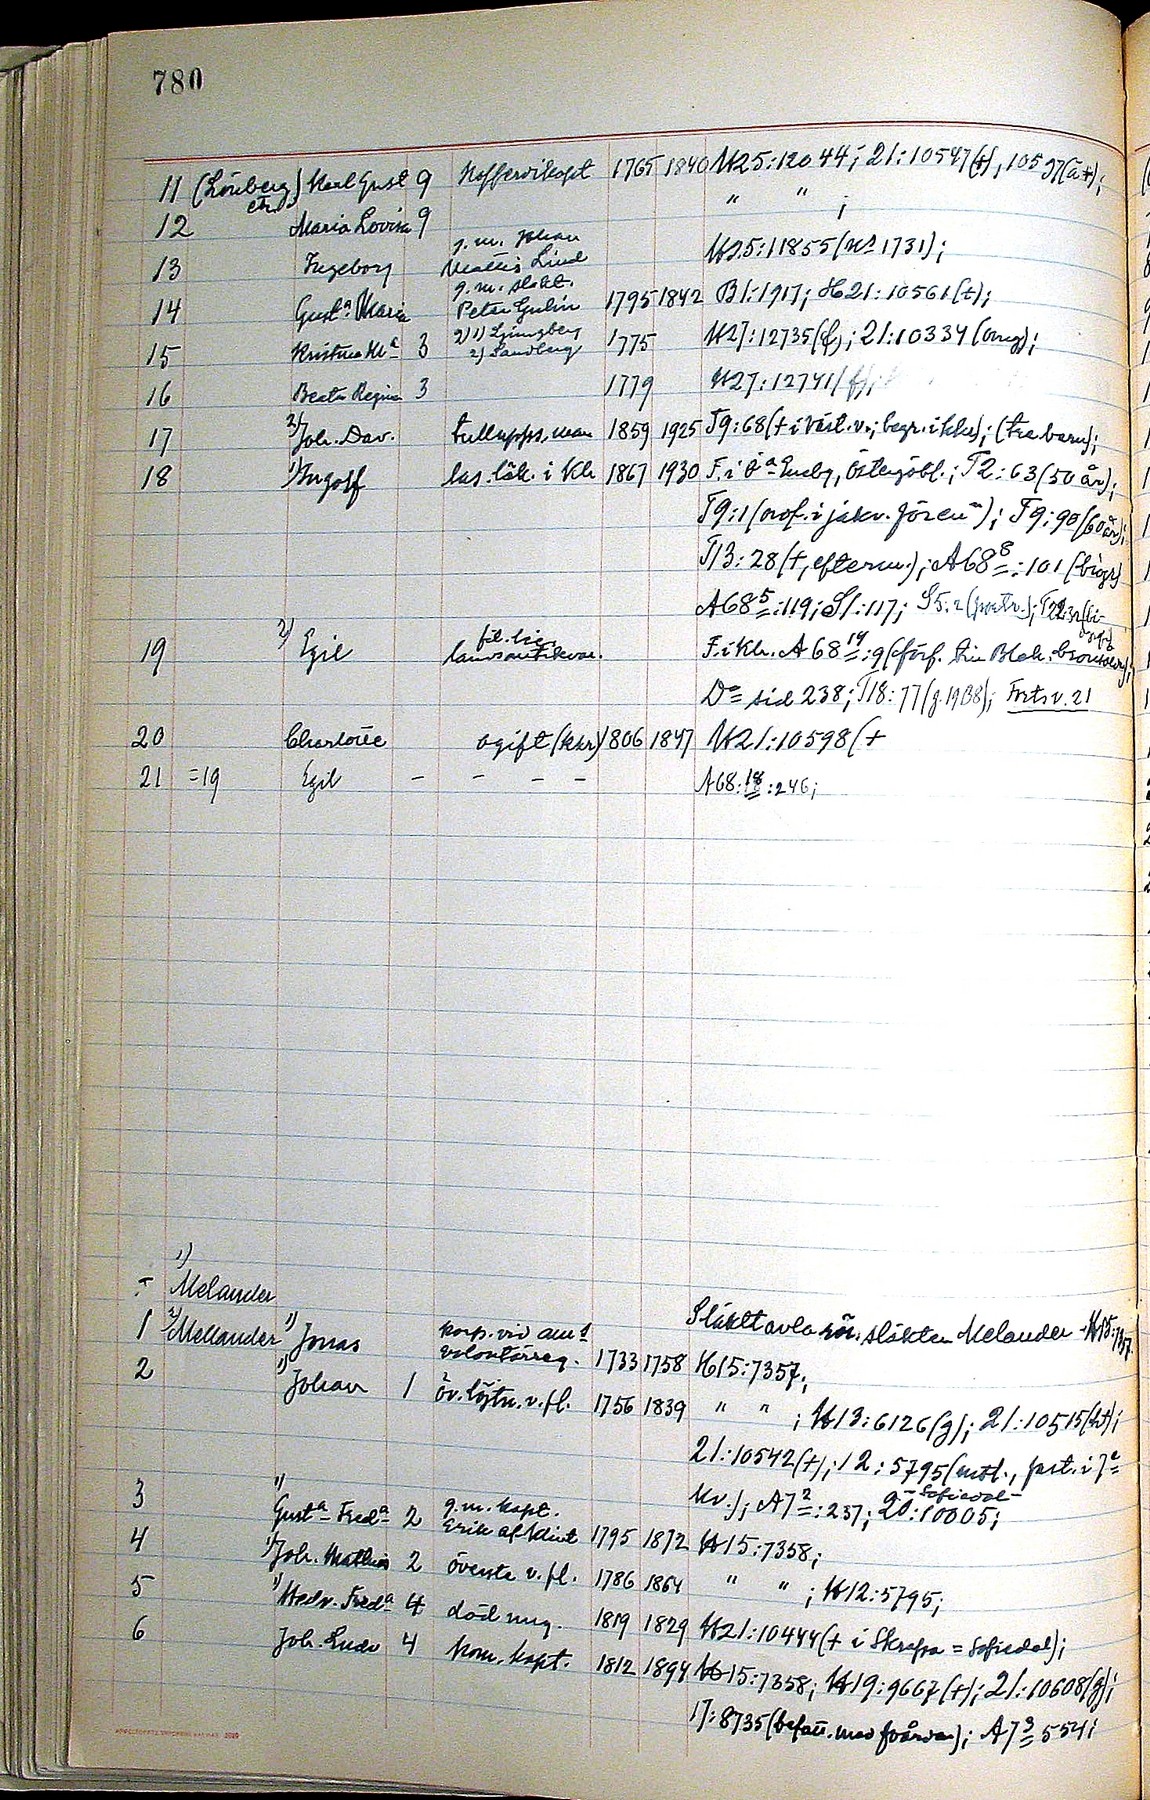 780
11 (Lönberg) Karl Gust 9 Kofferdikapt 1765 1840 H25:12044; 21:10547(†), 10597(a+);
etc.
12 Maria Lovisa 9 " " ;
13 Ingeborg g.m. Johan Mattis Lind H25:11855(nr 1731);
14 Gusta Maria g.m. slakt. Peter Gulin 1795 1842 B1:1917; H21:10561(†);
15 Kristina Ma 3 g) 1) Ljungberg 2) Sandberg 1775 H27:12735(f); 21:10334(omg);
16 Beata Regina 3 1779 H27:12741(f);
17 2) Joh. Dav. tulluppsman 1859 1925 T9:68(† i Väst.v.; begr. i kka); (tre barn);
18 1) Ingolf las.läk. i Kla 1867 1930 F. i Öa Eneby, Östergötl.; T2:63(50 år);
T9:1(prof. i jakv. Jören"); T9:90(60år);
T13:28(†, efterm.); A68 8:101(biogr)
A68 5:119; S1:117; S5:2(portr.);
19 2) Egil fil.lic. landsantikvar. F. i Kla. A68 14:9(förf. Blek.
Do sid 238; T18:77(g.1938); Forts v. 21
20 Charlotte ogift (kkr) 1806 1847 H21:10598(†
21 =19 Egil - - - - A68:18:246;
1)
= Melander
Släkttavla rör. släkten Melander - H15:7357.
1 2) Mellander 1) Jonas korp. vid am:s volontärreg. 1733 1758 H15:7357;
2 1) Johan 1 öv.löjtn. v. fl. 1756 1839 " " ; H13:6126(g); 21:10515(ht);
21:10542(†); 12:5795(entl., port. i Ja
Kv.); A7 2:237; 20:10005;
g-Sofiedal-
3 " Gusta Freda 2 g.m. kapt. Erik af Klint 1795 1872 H15:7358;
4 1) Joh. Mathias 2 överste v. fl. 1786 1864 " " ; H12:5795;
5 " Hedv. Freda 4 död ung. 1819 1829 H21:10444(† i Skrapa = Sofiedal);
6 Joh. Ludv 4 kom. kapt. 1812 1894 H15:7358; H19:9667(†); 21:10608(g);
17:8735(befatt. med fvården); A7 3 554;